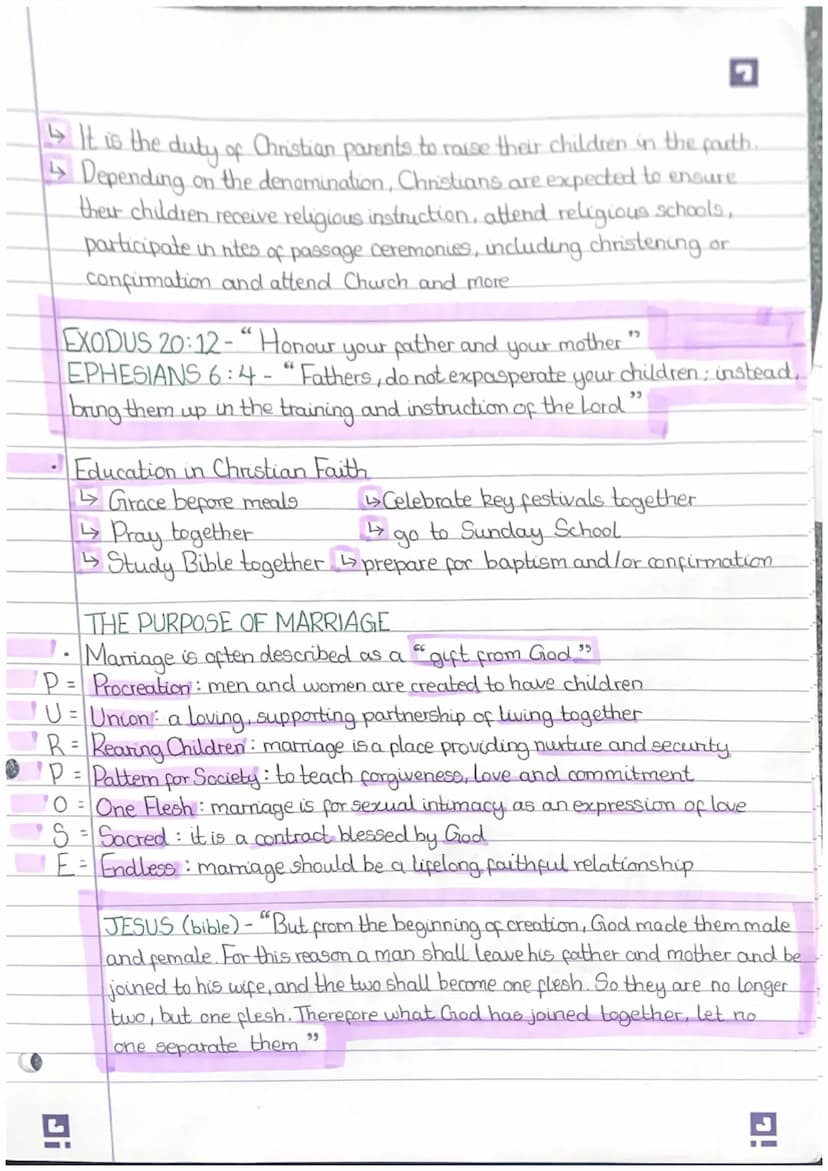 ↳ It is the duty of Christian parents to raise their children in the faith.
↳ Depending on the denomination, Christians are expected to ensure
their children receive religious instruction, attend religious schools,
participate in rites of passage ceremonies, including christening or
confirmation and attend Church and more
EXODUS 20:12 - “Honour your father and your mother”
EPHESIANS 6:4 - “Fathers, do not expasperate your children; instead,
bring them up in the training and instruction of the Lord”
· Education in Christian Faith
↳ Grace before meals ↳ Celebrate key festivals together
↳ Pray together ↳ go to Sunday School
↳ Study Bible together ↳ prepare for baptism and/or confirmation
THE PURPOSE OF MARRIAGE
· Marriage is often described as a “gift from God”
P = Procreation: men and women are created to have children
U = Union: a loving, supporting partnership of living together
R = Rearing Children: marriage is a place providing nurture and security
P = Pattern for Society: to teach forgiveness, love and commitment
O = One Flesh: marriage is for sexual intimacy as an expression of love
S = Sacred: it is a contract blessed by God
E = Endless: marriage should be a lifelong, faithful relationship
JESUS (bible) - “But from the beginning of creation, God made them male
and female. For this reason a man shall leave his father and mother and be
joined to his wife, and the two shall become one flesh. So they are no longer
two, but one flesh. Therefore what God has joined together, let no
one separate them”